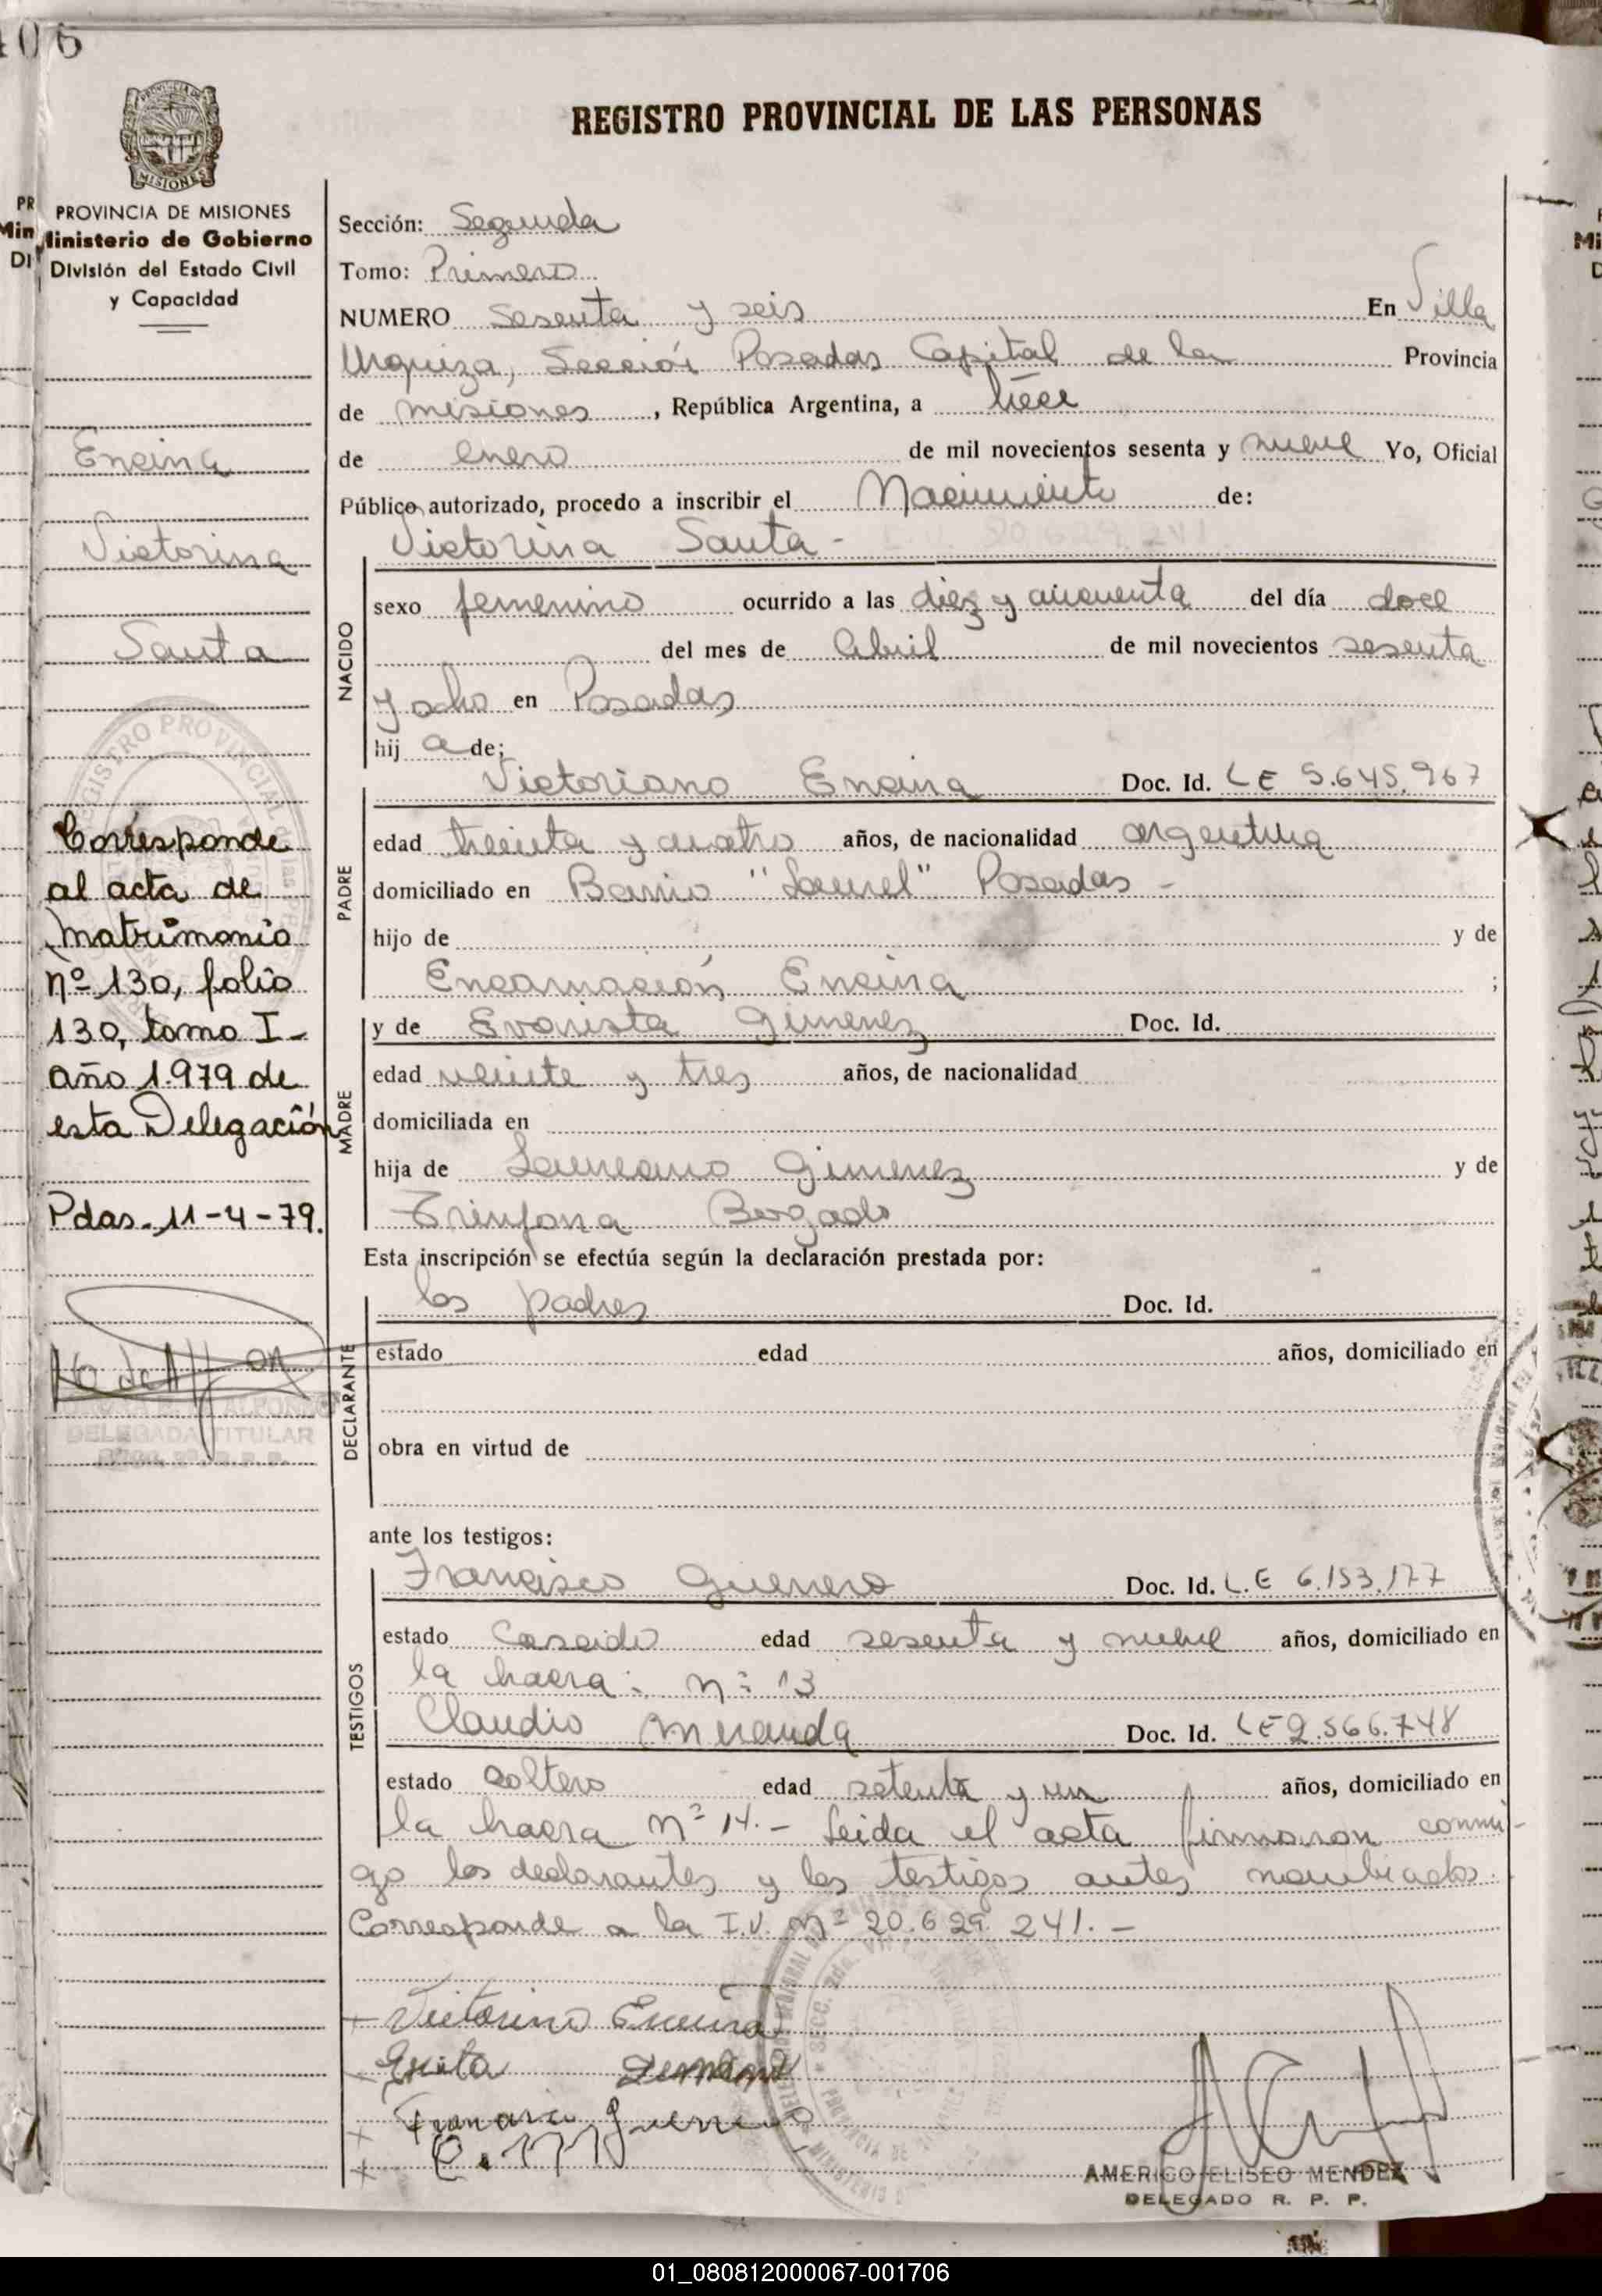 REGISTRO PROVINCIAL DE LAS PERSONAS
MISIONES
PROVINCIA DE MISIONES
Ministerio de Gobierno
División del Estado Civil
y Capacidad
Encina
Victorina
Santa
Corresponde
al acta de
Matrimonio
nº 130, folio
130, tomo I-
año 1.979 de
esta Delegación
Pdas. 11-4-79.
DELEGADA TITULAR
Sección: Segunda
Tomo: Primero
NUMERO Sesenta y seis En Villa
Urquiza, Sección Posadas Capital de la Provincia
de misiones, República Argentina, a trece
de enero de mil novecientos sesenta y nueve Yo, Oficial
Público autorizado, procedo a inscribir el Nacimiento de:
Victorina Santa -
NACIDO
sexo femenino ocurrido a las diez y cincuenta del día doce
del mes de Abril de mil novecientos sesenta
y ocho en Posadas
hij a de;
Victoriano Encina Doc. Id. LE 5.645.967
PADRE
edad treinta y cuatro años, de nacionalidad argentina
domiciliado en Barrio "Laurel" Posadas -
hijo de y de
Encarnación Encina ;
y de Evarista Gimenez Doc. Id.
MADRE
edad veinte y tres años, de nacionalidad
domiciliada en
hija de Laureano Gimenez y de
Trinfona Bogado
Esta inscripción se efectúa según la declaración prestada por:
los padres Doc. Id.
DECLARANTE
estado edad años, domiciliado en
obra en virtud de
ante los testigos:
Francisco Guerrero Doc. Id. L.E 6.153.177
TESTIGOS
estado Casado edad sesenta y nueve años, domiciliado en
la hacra: nº 13
Claudio Miranda Doc. Id. LE 2.566.748
estado soltero edad setenta y un años, domiciliado en
la hacra nº 14.- Leida el acta firmaron conmi-
go los declarantes y los testigos antes nombrados.
Corresponde a la I.V. nº 20.629.241.-
Victorino Encina
Guerrero
AMERICO ELISEO MENDEZ
DELEGADO R. P. P.
01_080812000067-001706